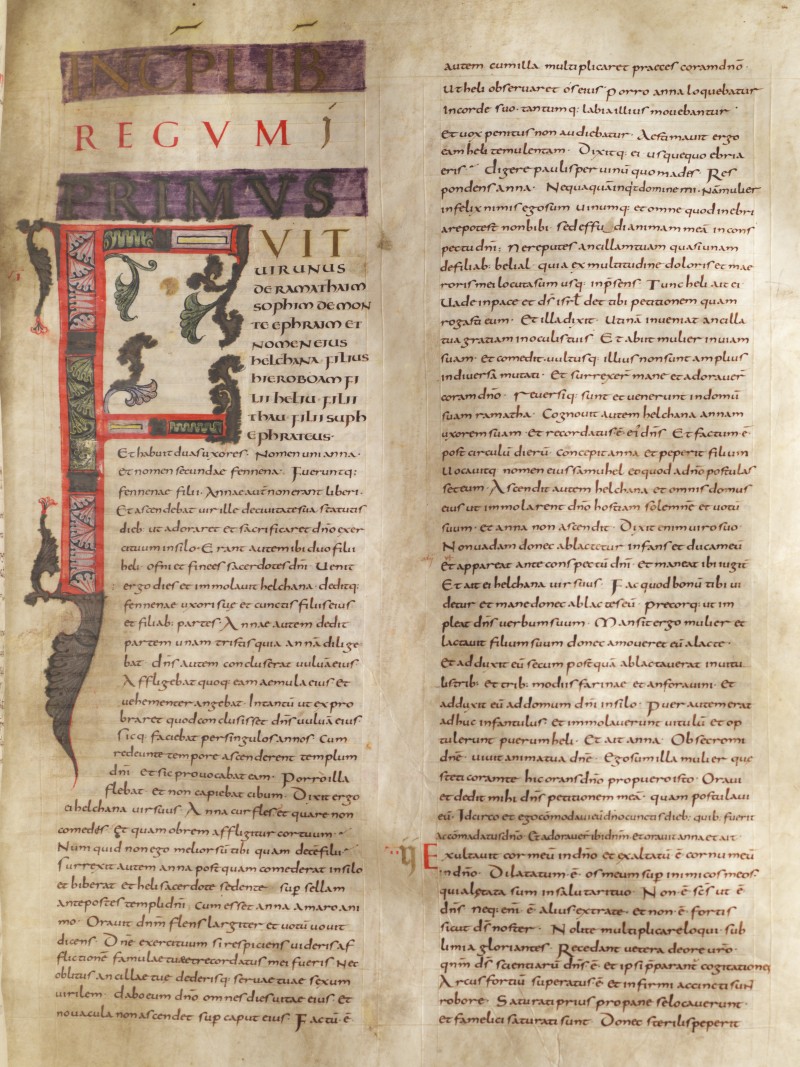 INCP LIB
REGVM I
PRIMVS
FVIT
UIR UNUS
DE RAMATHAIM
SOPHIM DE MON
TE EPHRAIM ET
NOMEN EIUS
HELCHANA · FILIUS
HIEROBOAM FI
LII HELIU · FILII
THAU · FILII SUPH
EPHRATEUS ·
Et habuit duas uxores · Nomen uni anna ·
et nomen secundae fennena · Fueruntq;
fennenae filii · Annae aut̄ non erant liberi ·
Et ascendebat uir ille de ciuitate sua statutis
dieb; ut adoraret et sacrificaret dn̄o exer
cituum in silo · Erant autem ibi duo filii
heli · ofni et finees sacerdotes dn̄i · Uenit
ergo dies et immolauit helchana · deditq;
fennenae uxori suae et cunctis filiis eius
et filiab; partes · Annae autem dedit
partem unam tristis quia annā dilige
bat · dn̄s autem concluserat uuluā eius
Affligebat quoq; eam aemula eius et
uehementer angebat · Intantū ut expro
braret quod conclusisset dn̄s uuluā eius
sicq; faciebat per singulos annos · Cum
redeunte tempore ascenderent templum
dn̄i · Et sic prouocabat eam · Porro illa
flebat et non capiebat cibum · Dixit ergo
ei helchana uir suus · Anna cur fles et quare non
comedes · Et quam obrem affligitur cor tuum ·
Nūm quid non ego melior sū tibi quam decē filii ·
Surrexit autem anna postquam comederat in silo
et biberat · et heli sacerdote sedente · sup̄ sellam
ante postes templi dn̄i · Cum esset anna amaro ani
mo · Orauit dn̄m flens largiter et uotū uouit
dicens · Dn̄e exercituum si respiciens uideris af
flictionē famulae tuae et recordatus mei fueris Nec
oblitus ancillae tuae dederisq; seruae tuae sexum
uirilem · dabo eum dn̄o omnes dies uitae eius et
nouacula non ascendet sup̄ caput eius · Factū ē
autem cum illa multiplicaret praeces coram dn̄o ·
Ut heli obseruaret os eius · Porro anna loquebatur
in corde suo · tantumq; labia illius mouebantur ·
Et uox penitus non audiebatur · Aestimauit ergo
eam heli temulentam · Dixitq; ei usquequo ebria
eris · digere paulisper uinū quo mades · Res
pondens anna · Nequaquā inqt domine mi · Nā mulier
infelix nimis ego sum uinumq; et omne quod inebri
are potest non bibi · sed effudi animam meā in cons
pectu dn̄i · Ne reputes ancillam tuam quasi unam
de filiab; belial · quia ex multitudine doloris et mae
roris mei locuta sum usq; in p̄sens · Tunc heli ait ei
Uade in pace et d̄s isrl̄ det tibi petitionem quam
rogasti eum · Et illa dixit · Utinā inueniat ancilla
tua gratiam in oculis tuis · Et abiit mulier in uiam
suam · et comedit · uultusq; illius non sunt amplius
in diuersa mutati · Et surrexer̄ mane et adorauer̄
coram dn̄o · reuersiq; sunt et uenerunt in domū
suam ramatha · Cognouit autem helchana annam
uxorem suam · et recordatus ē ei dn̄s · Et factum ē ·
post circulū dierū · Concepit anna et peperit filium
Uocauitq; nomen eius samuhel eo quod a dn̄o postulas
set eum · Ascendit autem helchana et omnis domus
eius ut immolarent dn̄o hostiam solemnē et uotū
suum · et anna non ascendit · Dixit enim uiro suo
Non uadam donec ablactetur infans et ducam eū
et appareat ante conspectū dn̄i · et maneat ibi iugit̄
Et ait ei helchana uir suus · Fac quod bonū tibi ui
detur et mane donec ablactes eū · Precorq; ut im
pleat dn̄s uerbum suum · Mansit ergo mulier et
lactauit filium suum donec amoueret eū a lacte ·
Et adduxit eū secum postquā ablactauerat in uitu
lis trib; et trib; modiis farinae et anfora uini · Et
adduxit eū ad domum dn̄i in silo · Puer autem erat
adhuc infantulus · et immolauerunt uitulū et op
tulerunt puerum heli · Et ait anna · Obsecro mi
dn̄e · uiuit anima tua dn̄e · Ego sum illa mulier quae
steti coram te hic orans dn̄o pro puero isto · Oraui
et dedit mihi dn̄s petitionem meā · quam postulaui
eū · Idcirco et ego cōmodaui eū dn̄o cunctis dieb; quib; fuerit
accōmodatus dn̄o · Et adorauer̄ ibi dn̄m · et orauit anna et ait ·
Exultauit cor meū in dn̄o et exaltatū ē cornu meū
in dn̄o · Dilatatum ē os meum sup̄ inimicos meos
quia lętata sum in salutari tuo · Non ē sc̄s ut ē
dn̄s · neq; eni ē alius extra te · et non ē fortis
sicut d̄s noster · Nolite multiplicare loqui sub
limia gloriantes · Recedant uetera de ore uro ·
qnm d̄s scientiarū dn̄s ē · et ipsi p̄parant̄ cogitationes
Arcus fortiū superatus ē et infirmi accincti sunt
robore · Saturati prius pro pane se locauerunt ·
et famelici saturati sunt · Donec sterilis peperit